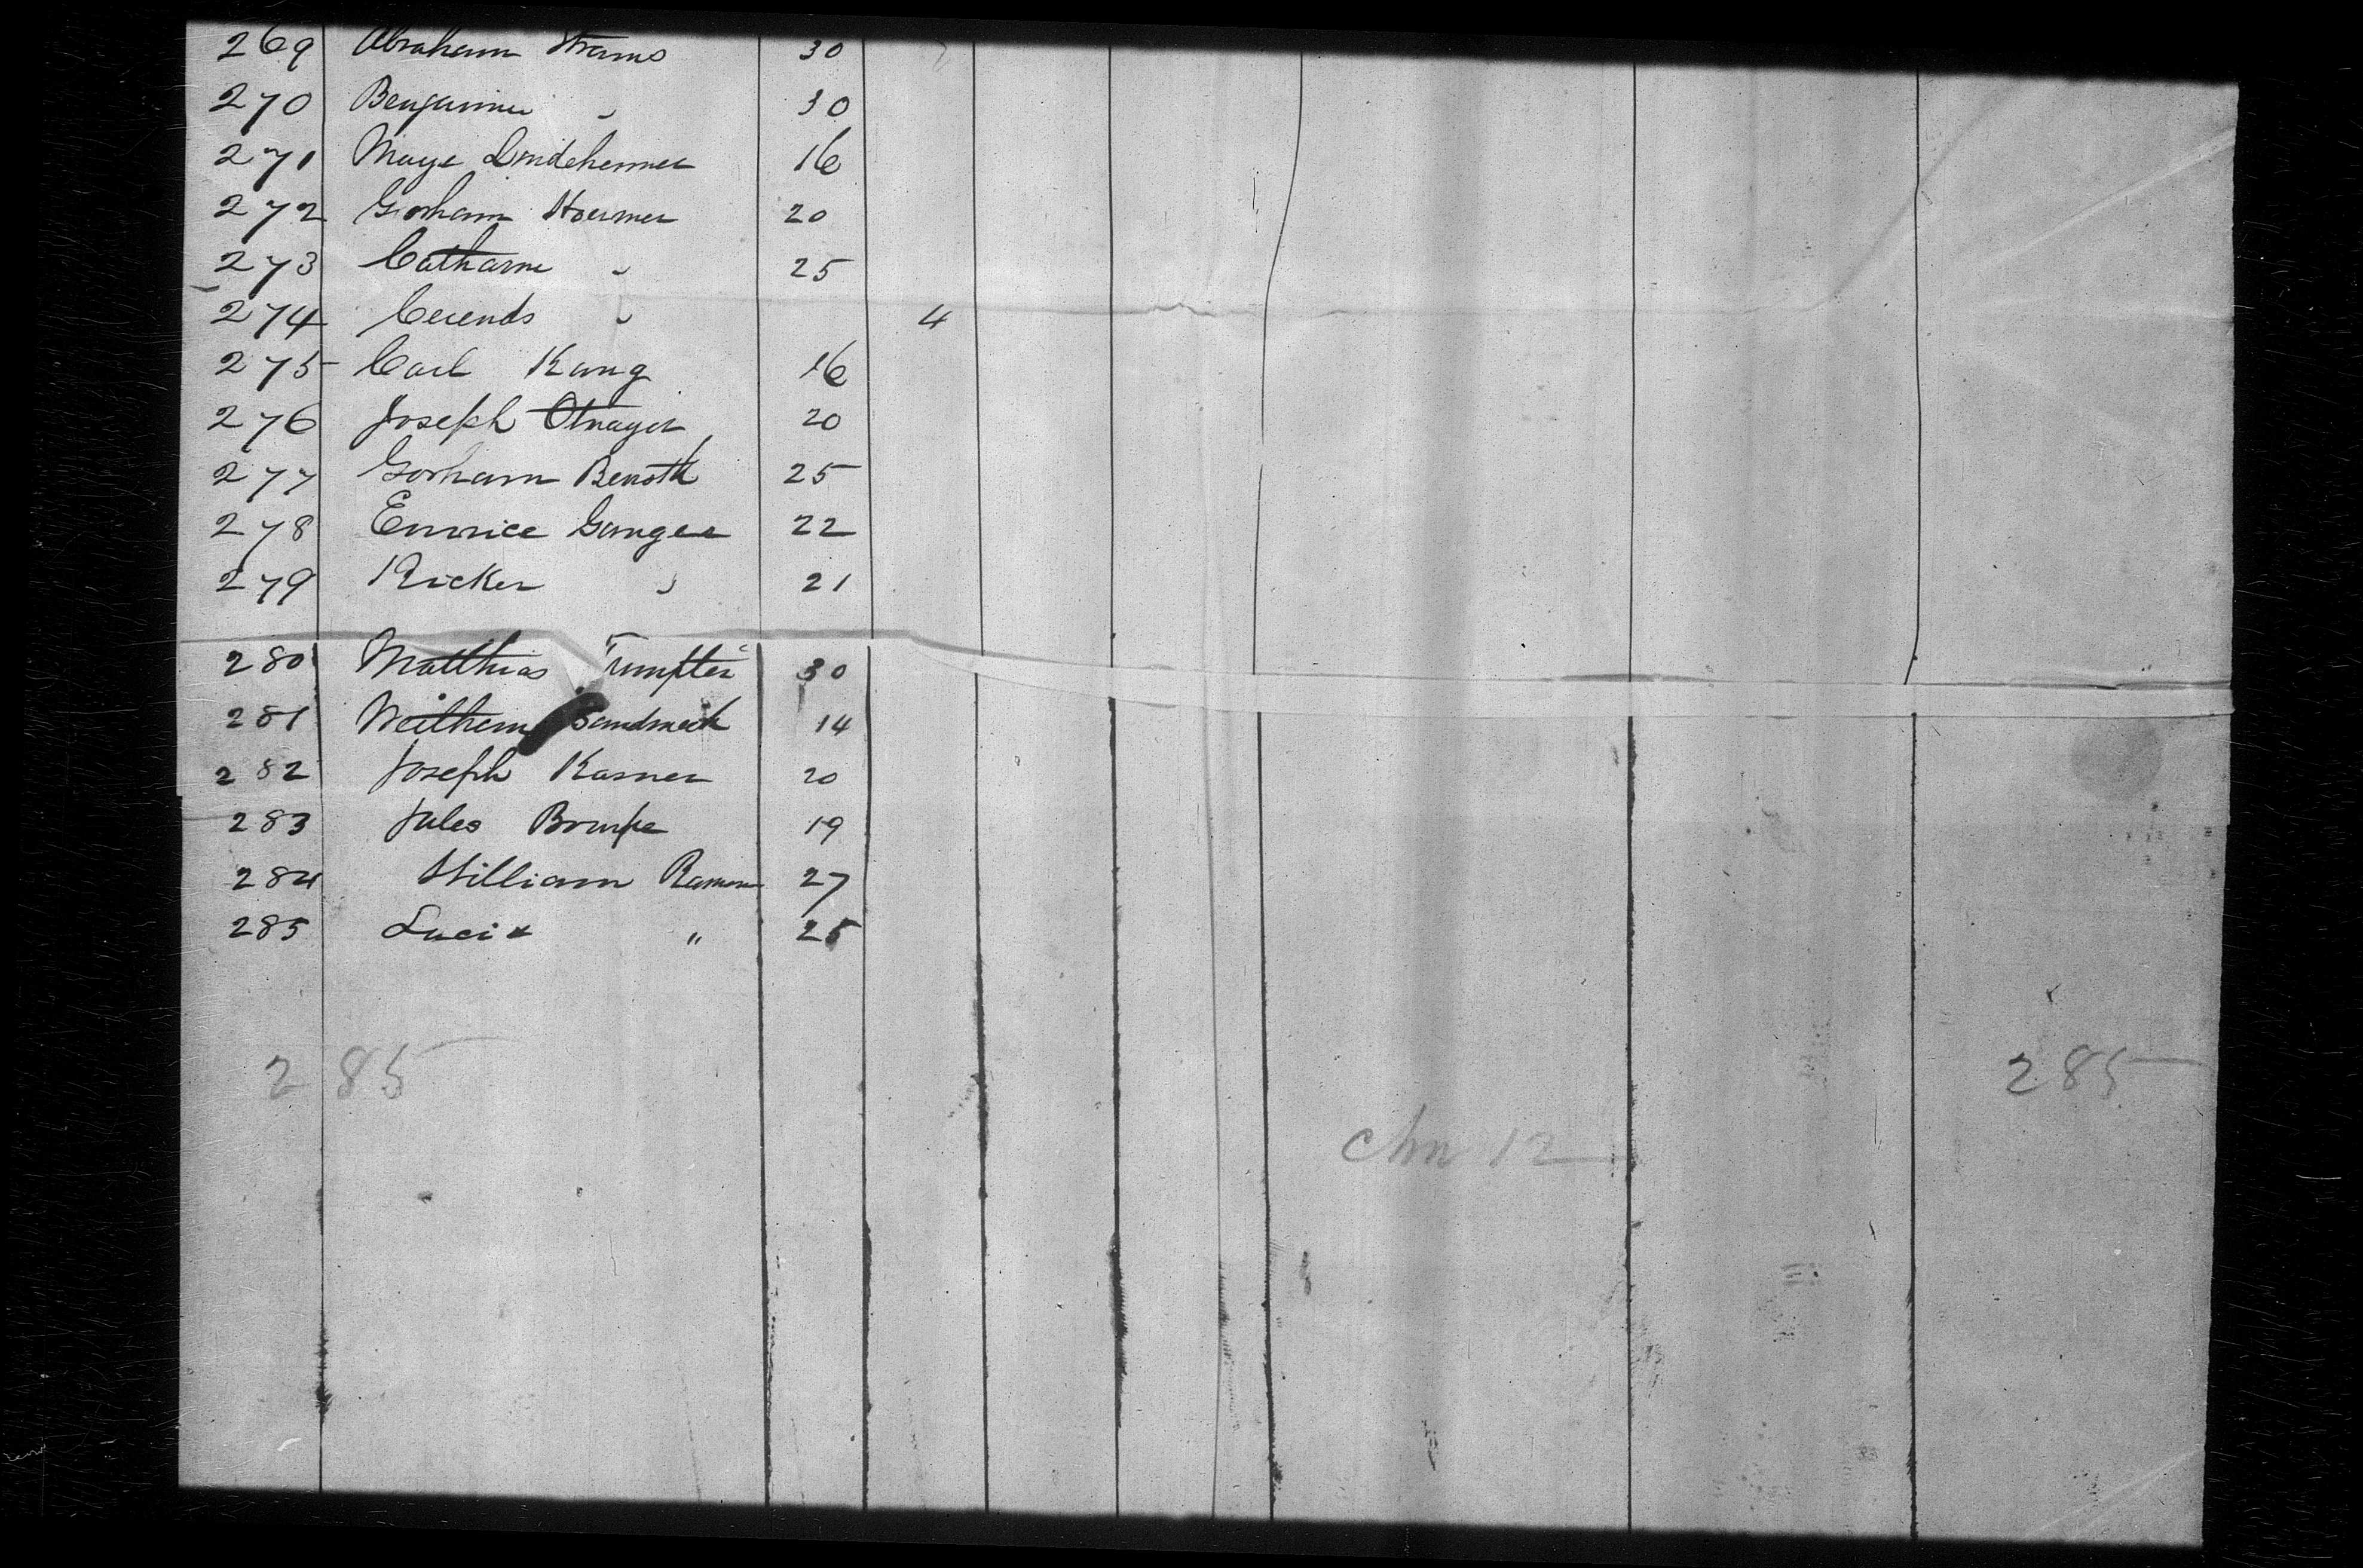 269 Abraham Strams 30
270 Benjamine " 30
271 Maye Lindehermer 16
272 Gorham Hoermer 20
273 Catharne " 25
274 Cecends " 4
275 Carl Kang 16
276 Joseph Otnayer 20
277 Gorham Benoth 25
278 Eunrice Ganger 22
279 Ricker " 21
280 Matthias Tumpter 30
281 Weithem Sandmeck 14
282 Joseph Kasner 20
283 Jules Brumpe 19
284 William Ramom 27
285 Luci " 25
285 285
chn 12